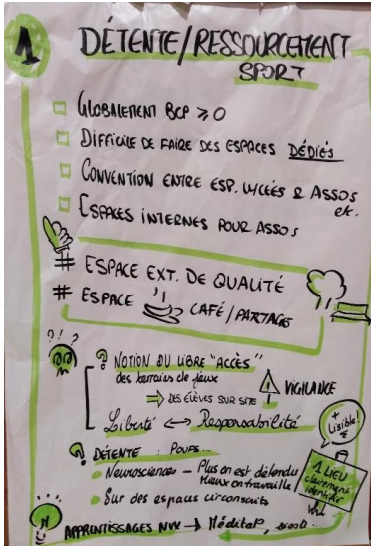 1
DÉTENTE/RESSOURCEMENT
SPORT
GLOBALEMENT BCP ⩾ 0
DIFFICILE DE FAIRE DES ESPACES DÉDIÉS
CONVENTION ENTRE ESP. LYCÉES & ASSOS
etc.
ESPACES INTERNES POUR ASSOS
# ESPACE EXT. DE QUALITÉ
# ESPACE CAFÉ/PARTAGE
?!?
? NOTION DU LIBRE "ACCÈS"
des terrains de jeux
⇒ DES ÉLÈVES SUR SITE
! VIGILANCE
Liberté ↔ Responsabilité
+ Lisible!
? DÉTENTE : POUFS...
Neurosciences – Plus on est détendu
mieux on travaille
Sur des espaces circonscrits
1 LIEU
clairement
identifié
APPRENTISSAGES → Méditat°,